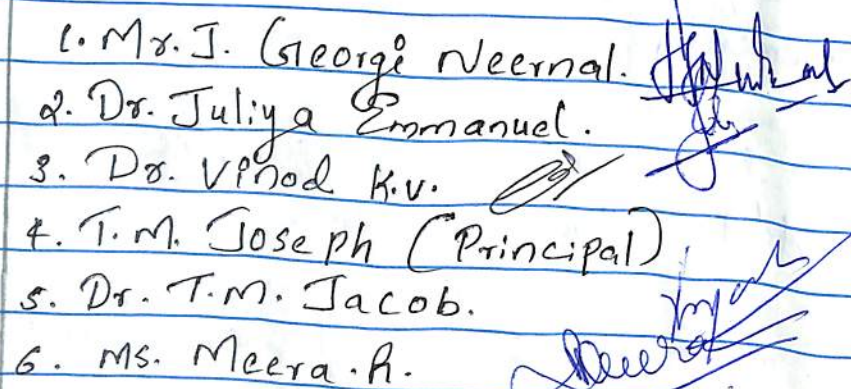 1. Mr. J. Georgi Neernal.
2. Dr. Juliya Emmanuel.
3. Dr. Vinod K.V.
4. T.M. Joseph (Principal)
5. Dr. T.M. Jacob.
6. Ms. Meera.R.